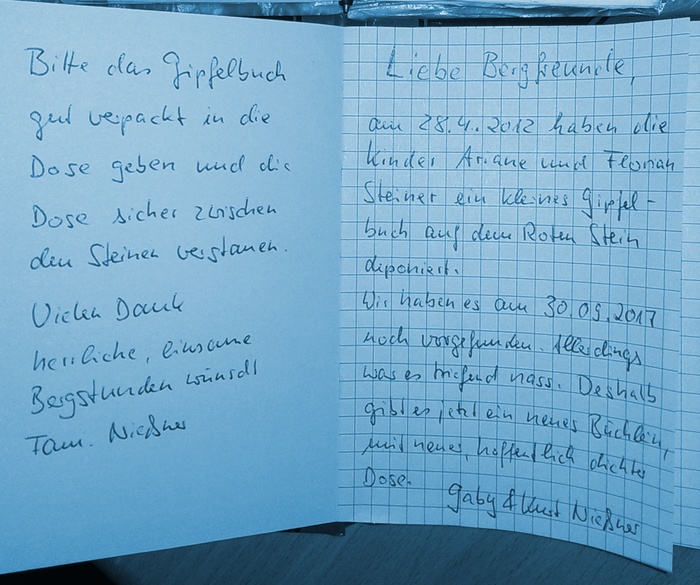 Bitte das Gipfelbuch
gut verpackt in die
Dose geben und die
Dose sicher zwischen
den Steinen verstauen.
Vielen Dank
herrliche, einsame
Bergstunden wünscht
Fam. Nießner
Liebe Bergfreunde,
am 28.4.2012 haben die
Kinder Ariane und Florian
Steiner ein kleines Gipfel-
buch auf dem Roten Stein
diponiert.
Wir haben es am 30.09.2017
noch vorgefunden. Allerdings
was es triefend nass. Deshalb
gibt es jetzt ein neues Büchlein,
mit neuer, hoffentlich dichter
Dose.
Gaby & Kurt Nießner